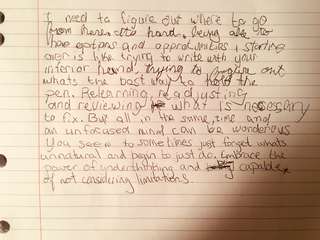 I need to figure out where to go
from here. its hard, being able to
have options and opportunities + starting
over is like trying to write with your
inferior hand, trying to figure out
whats the best way to hold the
pen. Relearning, readjusting
and reviewing what is necessary
to fix. But all in the same time and
an unfocused mind can be wonderous
You seem to sometimes just forget whats
unnatural and begin to just do. Embrace the
power of underthinking and capable
of not considering limitations.